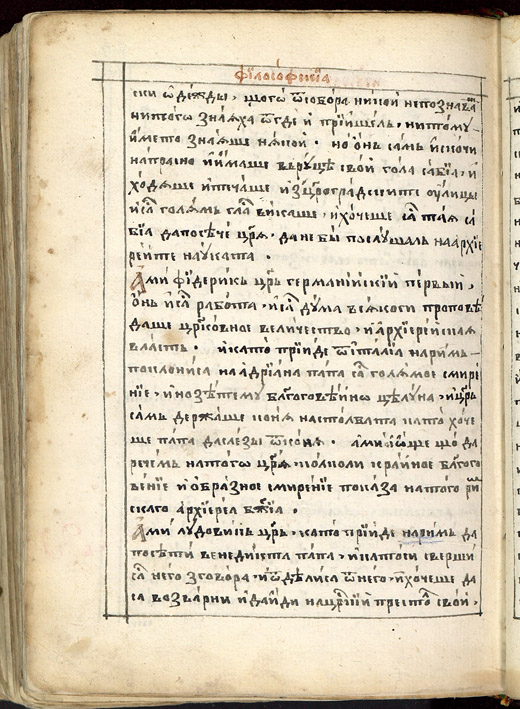 фїлосо́фскїѧ
ски ѡде́жды, щого̀ ѿсобора никой непознава
нитого̀ знаѧха ѿгдѐ и прїишелъ, нитомꙋ
име́то знаѧше нѧкой. но о́нь самъ и҆скочи
напрасно и и҆маше върꙋцѣ свой гола са́бїѧ, и
хо́дѧше и тече́ше и҆зцр҃ѝградските ѹ҆лицы
и҆са голѧ́мъ гла́ викаше, и҆хоче́ше са таѧ са
бїѧ дапосѣче цр҃ѧ, да не бы̀ послꙋшалъ на архїе
ре́ите наꙋката.
Ами фїдерикъ цр҃ъ германїйскїй первый,
онъ и҆са ра́бота, и҆са дꙋ́ма всѧкоги проповѣ
даше цр҃ковное величество, и҆архїерейскаѧ
власть. и҆като прїиде ѿита́лїѧ наримъ
поклонисѧ на адрїана папа са голѧ́мое смире
нїе, и҆нозѣтемꙋ благоговѣ́йнѡ цѣлꙋна, и҆цр҃ь
самъ держаше ко́нѧ настолвата като хоче
ше папа даслѣзы ѿко́нѧ. ами и҆ѡще що да
рече́мъ натого̀ цр҃ѧ, колколи кра́йное благого
вѣ́нїе и҆ ѻбразное смире́нїе показа натого ри
скаго архїереа бж҃їа.
Ами лꙋдовикъ цр҃ь, като прїиде наримъ да
посѣти венедикта папа, и҆катоси сверши
са него̀ зговора, и҆ѡдѣлиса ѿ него̀, и҆хочеше да
са возварни и҆ да и́ди на цр҃кїй престо́ свой,